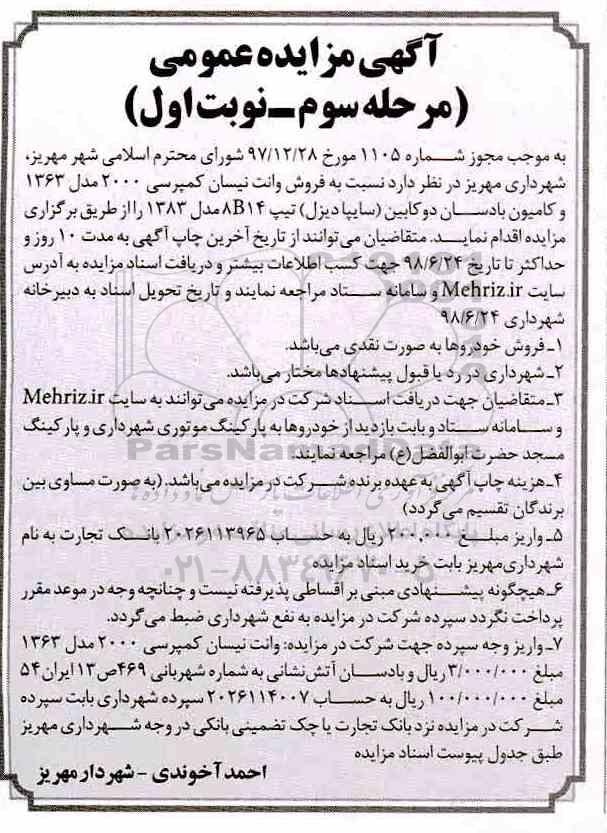 آگهی مزایده عمومی
(مرحله سوم ـ نوبت اول)
به موجب مجوز شماره ۱۱۰۵ مورخ ۹۷/۱۲/۲۸ شورای محترم اسلامی شهر مهریز،
شهرداری مهریز در نظر دارد نسبت به فروش وانت نیسان کمپرسی ۲۰۰۰ مدل ۱۳۶۳
و کامیون بادسان دو کابین (سایپا دیزل) تیپ 8B14 مدل ۱۳۸۳ را از طریق برگزاری
مزایده اقدام نماید. متقاضیان می‌توانند از تاریخ آخرین چاپ آگهی به مدت ۱۰ روز و
حداکثر تا تاریخ ۹۸/۶/۲۴ جهت کسب اطلاعات بیشتر و دریافت اسناد مزایده به آدرس
سایت Mehriz.ir و سامانه ستاد مراجعه نمایند و تاریخ تحویل اسناد به دبیرخانه
شهرداری ۹۸/۶/۲۴
۱ـ فروش خودروها به صورت نقدی می‌باشد.
۲ـ شهرداری در رد یا قبول پیشنهادها مختار می‌باشد.
۳ـ متقاضیان جهت دریافت اسناد شرکت در مزایده می‌توانند به سایت Mehriz.ir
و سامانه ستاد و بابت بازدید از خودروها به پارکینگ موتوری شهرداری و پارکینگ
مسجد حضرت ابوالفضل(ع) مراجعه نمایند
ParsNamadData
۴ـ هزینه چاپ آگهی به عهده برنده شرکت در مزایده می‌باشد. (به صورت مساوی بین
برندگان تقسیم می‌گردد)
۵ـ واریز مبلغ ۲۰۰,۰۰۰ ریال به حساب ۲۰۲۶۱۱۳۹۶۵ بانک تجارت به نام
شهرداری مهریز بابت خرید اسناد مزایده
۰۲۱-۸۸۳۴۹۶۷۰-۵
۶ـ هیچگونه پیشنهادی مبنی بر اقساطی پذیرفته نیست و چنانچه وجه در موعد مقرر
پرداخت نگردد سپرده شرکت در مزایده به نفع شهرداری ضبط می‌گردد.
۷ـ واریز وجه سپرده جهت شرکت در مزایده: وانت نیسان کمپرسی ۲۰۰۰ مدل ۱۳۶۳
مبلغ ۳/۰۰۰/۰۰۰ ریال و بادسان آتش‌نشانی به شماره شهربانی ۴۶۹ص۱۳ ایران ۵۴
مبلغ ۱۰۰/۰۰۰/۰۰۰ ریال به حساب ۲۰۲۶۱۱۴۰۰۷ سپرده شهرداری بابت سپرده
شرکت در مزایده نزد بانک تجارت یا چک تضمینی بانکی در وجه شهرداری مهریز
طبق جدول پیوست اسناد مزایده
احمد آخوندی - شهردار مهریز